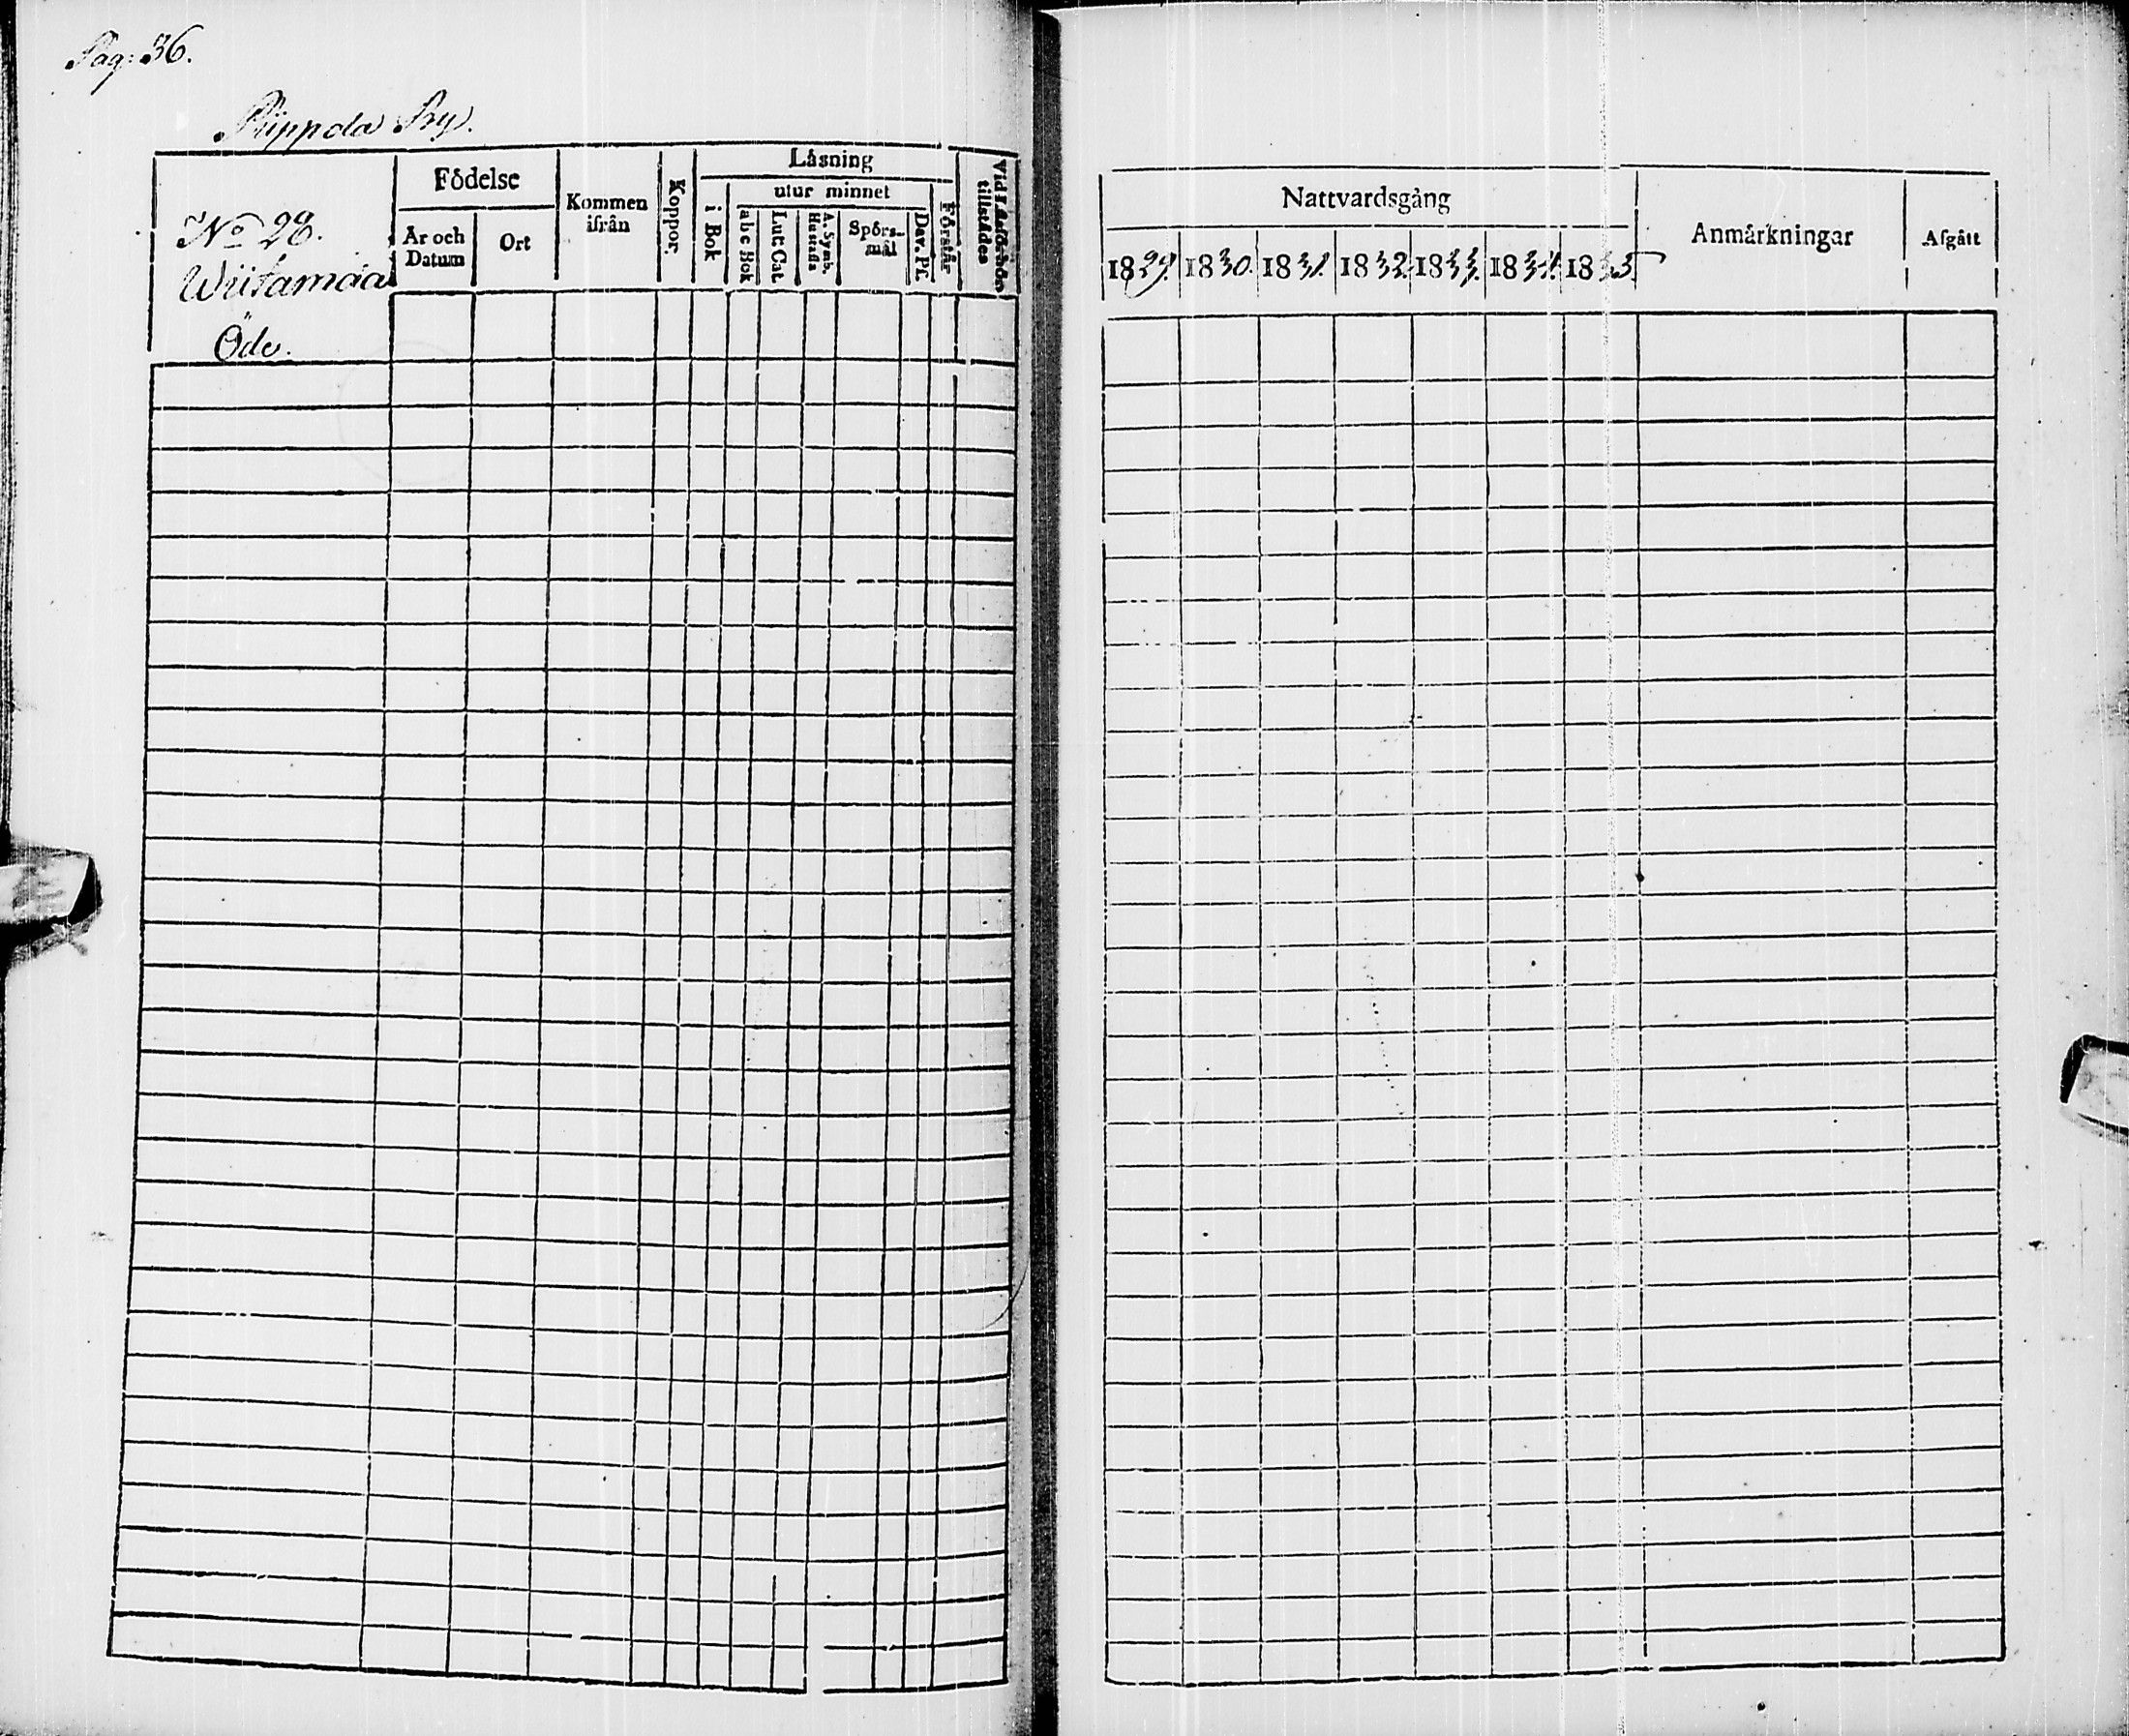 Pag: 36.
Piippola By.
No 28.
Wiitamaa
Öde.
Födelse
År och Datum
Ort
Kommen ifrån
Koppor.
Läsning
i Bok
utur minnet
a b c Bok
Lut. Cat.
A. Symb. Hustafla
Spörsmål
Dav. Ps.
Förstår
Vid Läsförhör tillstädes
Nattvardsgång
1829. 1830. 1831. 1832. 1833. 1834. 1835.
Anmärkningar
Afgått